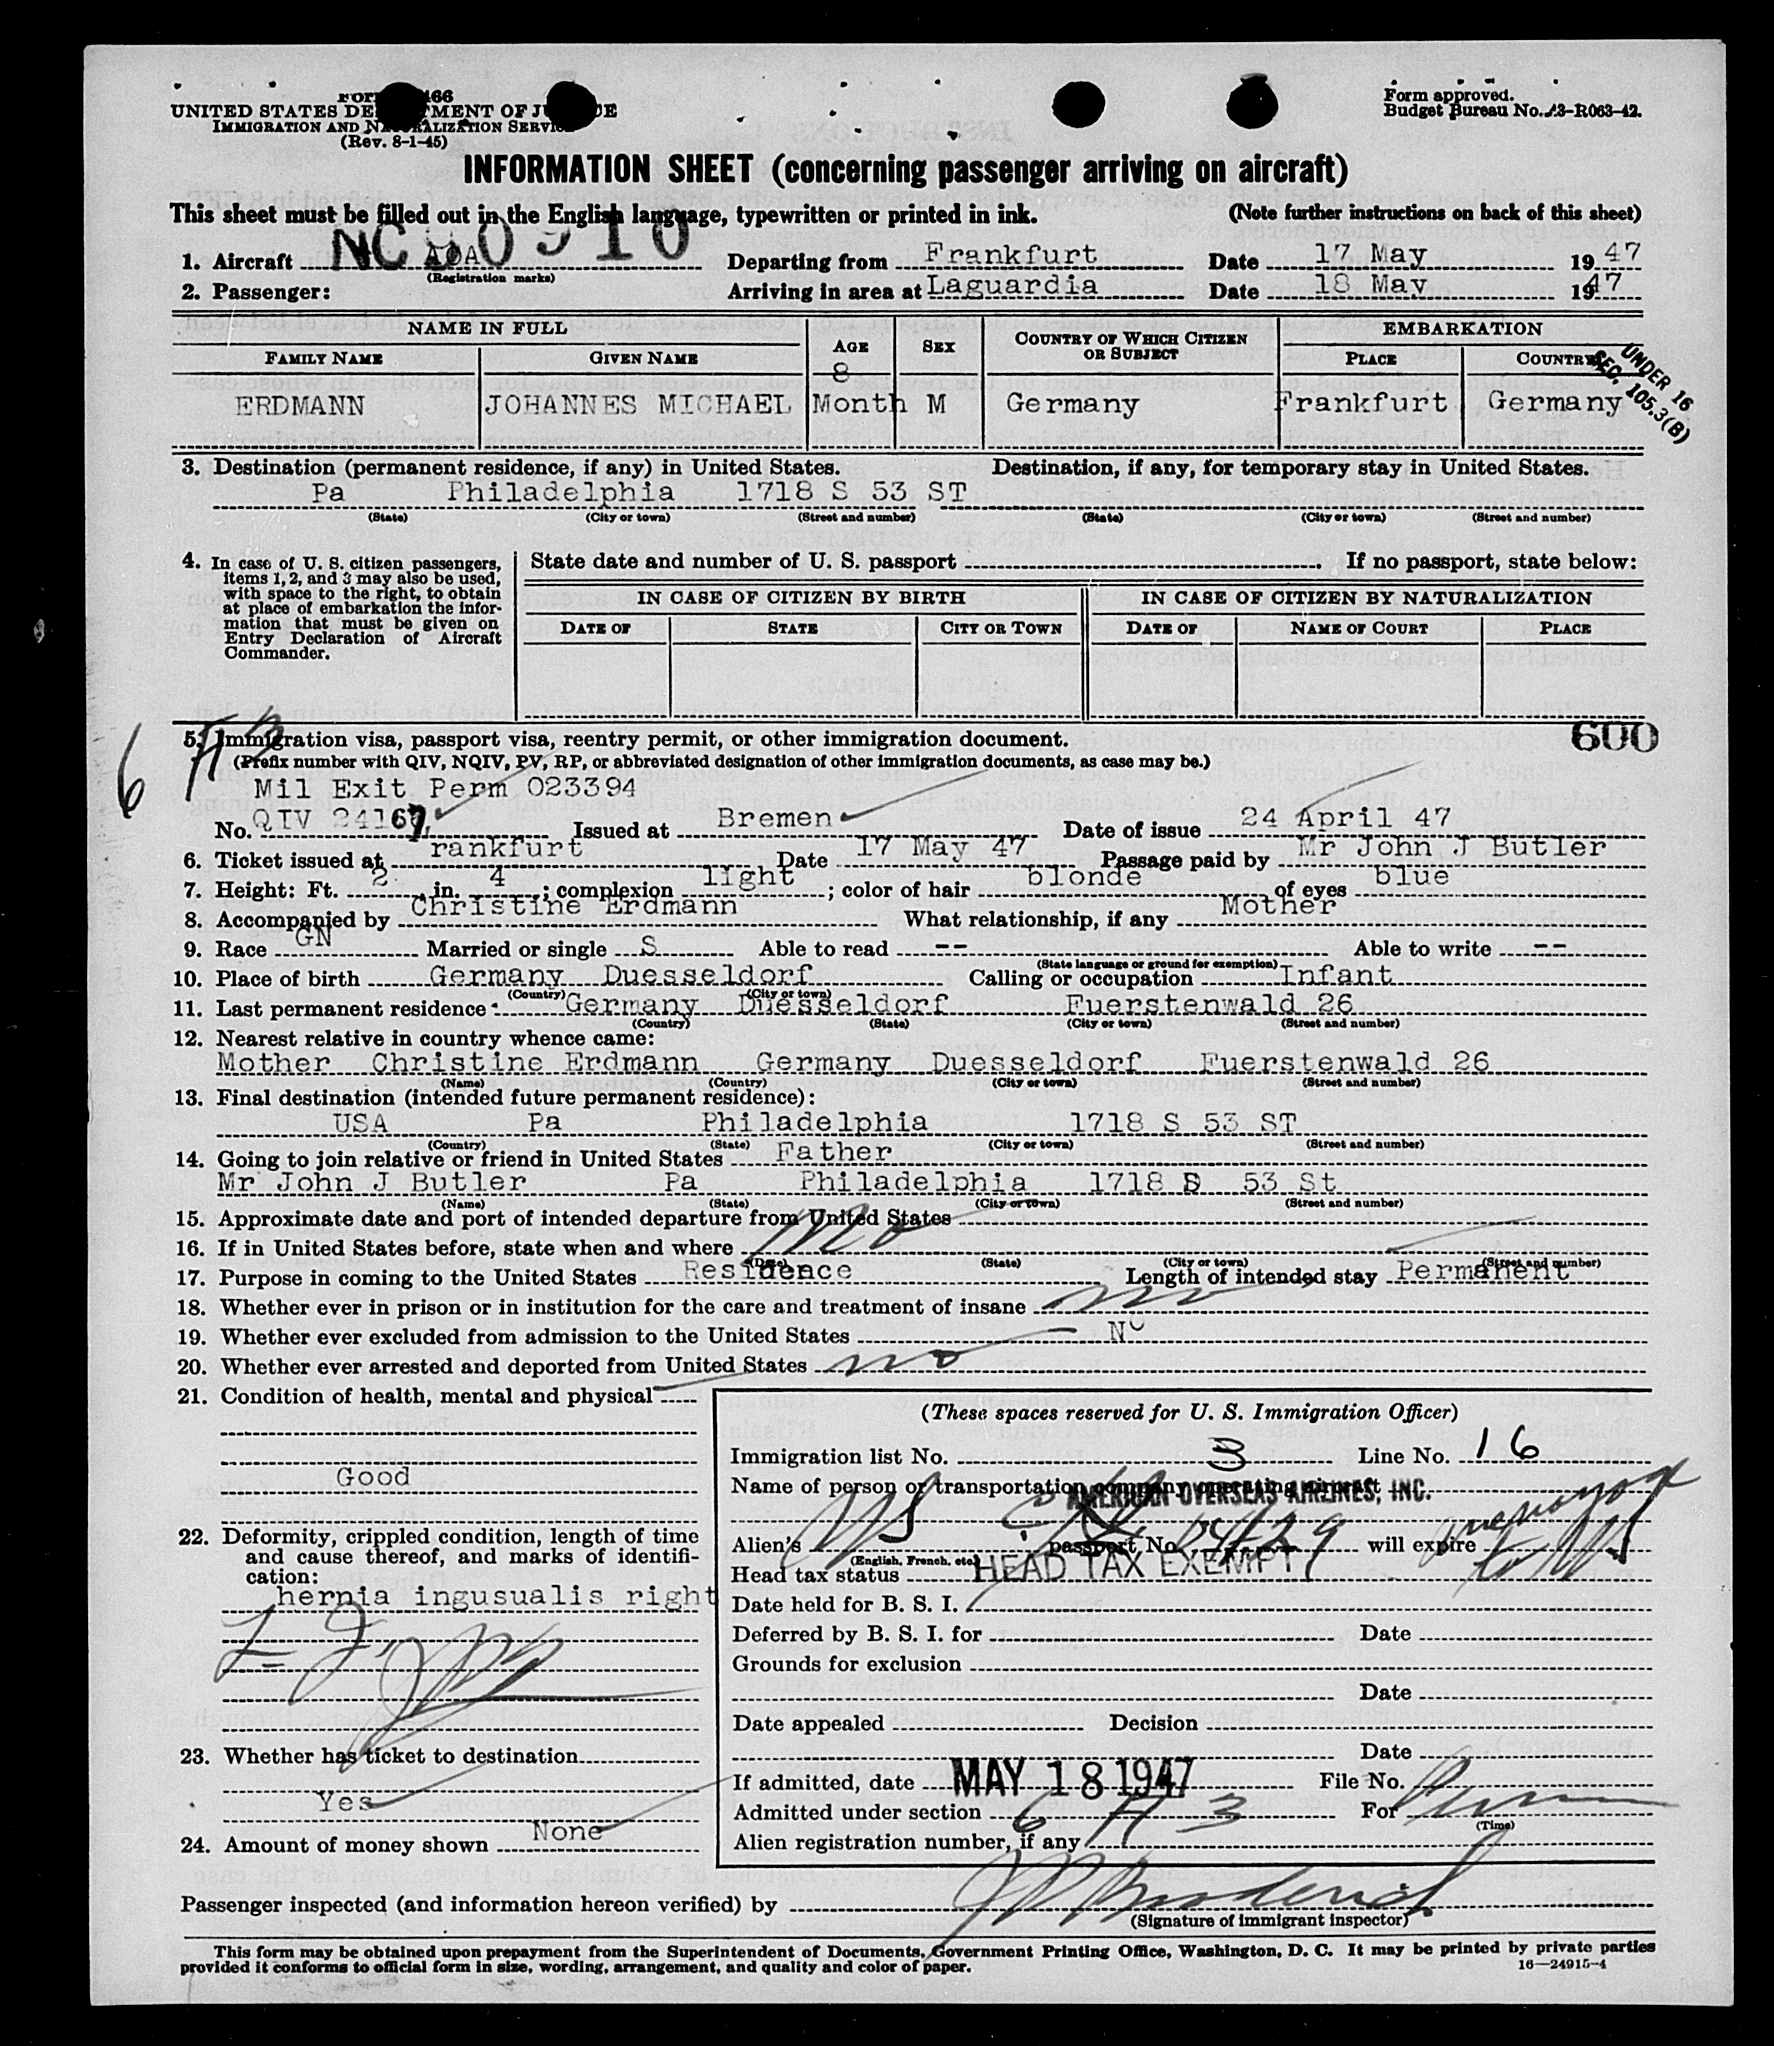 UNITED STATES DEPARTMENT OF JUSTICE
IMMIGRATION AND NATURALIZATION SERVICE
(Rev. 8-1-45)
Form approved.
Budget Bureau No. 43-R063-42.
INFORMATION SHEET (concerning passenger arriving on aircraft)
This sheet must be filled out in the English language, typewritten or printed in ink. (Note further instructions on back of this sheet)
1. Aircraft AOA Departing from Frankfurt Date 17 May 1947
(Registration marks)
2. Passenger: Arriving in area at Laguardia Date 18 May 1947
NAME IN FULL AGE SEX COUNTRY OF WHICH CITIZEN OR SUBJECT EMBARKATION
FAMILY NAME GIVEN NAME PLACE COUNTRY
UNDER 16
SEC. 105.3(B)
8
ERDMANN JOHANNES MICHAEL Month M Germany Frankfurt Germany
3. Destination (permanent residence, if any) in United States. Destination, if any, for temporary stay in United States.
Pa Philadelphia 1718 S 53 ST
(State) (City or town) (Street and number) (State) (City or town) (Street and number)
4. In case of U. S. citizen passengers, items 1, 2, and 3 may also be used, with space to the right, to obtain at place of embarkation the information that must be given on Entry Declaration of Aircraft Commander.
State date and number of U. S. passport . If no passport, state below:
IN CASE OF CITIZEN BY BIRTH IN CASE OF CITIZEN BY NATURALIZATION
DATE OF STATE CITY OR TOWN DATE OF NAME OF COURT PLACE
600
6 H 3
5. Immigration visa, passport visa, reentry permit, or other immigration document.
(Prefix number with QIV, NQIV, PV, RP, or abbreviated designation of other immigration documents, as case may be.)
Mil Exit Perm 023394
No. QIV 24167 Issued at Bremen Date of issue 24 April 47
6. Ticket issued at rankfurt Date 17 May 47 Passage paid by Mr John J Butler
7. Height: Ft. 2 in. 4 ; complexion light ; color of hair blonde of eyes blue
8. Accompanied by Christine Erdmann What relationship, if any Mother
9. Race GN Married or single S Able to read -- Able to write --
(State language or ground for exemption)
10. Place of birth Germany Duesseldorf Calling or occupation Infant
(Country) (City or town)
11. Last permanent residence Germany Duesseldorf Fuerstenwald 26
(Country) (State) (City or town) (Street and number)
12. Nearest relative in country whence came:
Mother Christine Erdmann Germany Duesseldorf Fuerstenwald 26
(Name) (Country) (City or town) (Street and number)
13. Final destination (intended future permanent residence):
USA Pa Philadelphia 1718 S 53 ST
(Country) (State) (City or town) (Street and number)
14. Going to join relative or friend in United States Father
Mr John J Butler Pa Philadelphia 1718 S 53 St
(Name) (State) (City or town) (Street and number)
15. Approximate date and port of intended departure from United States
16. If in United States before, state when and where No
(Date) (State) (City or town) (Street and number)
17. Purpose in coming to the United States Residence Length of intended stay Permanent
18. Whether ever in prison or in institution for the care and treatment of insane no
19. Whether ever excluded from admission to the United States No
20. Whether ever arrested and deported from United States no
21. Condition of health, mental and physical
Good
22. Deformity, crippled condition, length of time and cause thereof, and marks of identification:
hernia ingusualis right
23. Whether has ticket to destination
Yes
24. Amount of money shown None
(These spaces reserved for U. S. Immigration Officer)
Immigration list No. 3 Line No. 16
Name of person or transportation company operating aircraft
AMERICAN OVERSEAS AIRLINES, INC.
Alien's passport No. will expire
(English, French, etc.)
Head tax status HEAD TAX EXEMPT
Date held for B. S. I.
Deferred by B. S. I. for Date
Grounds for exclusion
Date
Date appealed Decision
Date
If admitted, date MAY 18 1947 File No.
Admitted under section 6 H 3 For
(Time)
Alien registration number, if any
Passenger inspected (and information hereon verified) by
(Signature of immigrant inspector)
This form may be obtained upon prepayment from the Superintendent of Documents, Government Printing Office, Washington, D. C. It may be printed by private parties
provided it conforms to official form in size, wording, arrangement, and quality and color of paper.
16—24915-4